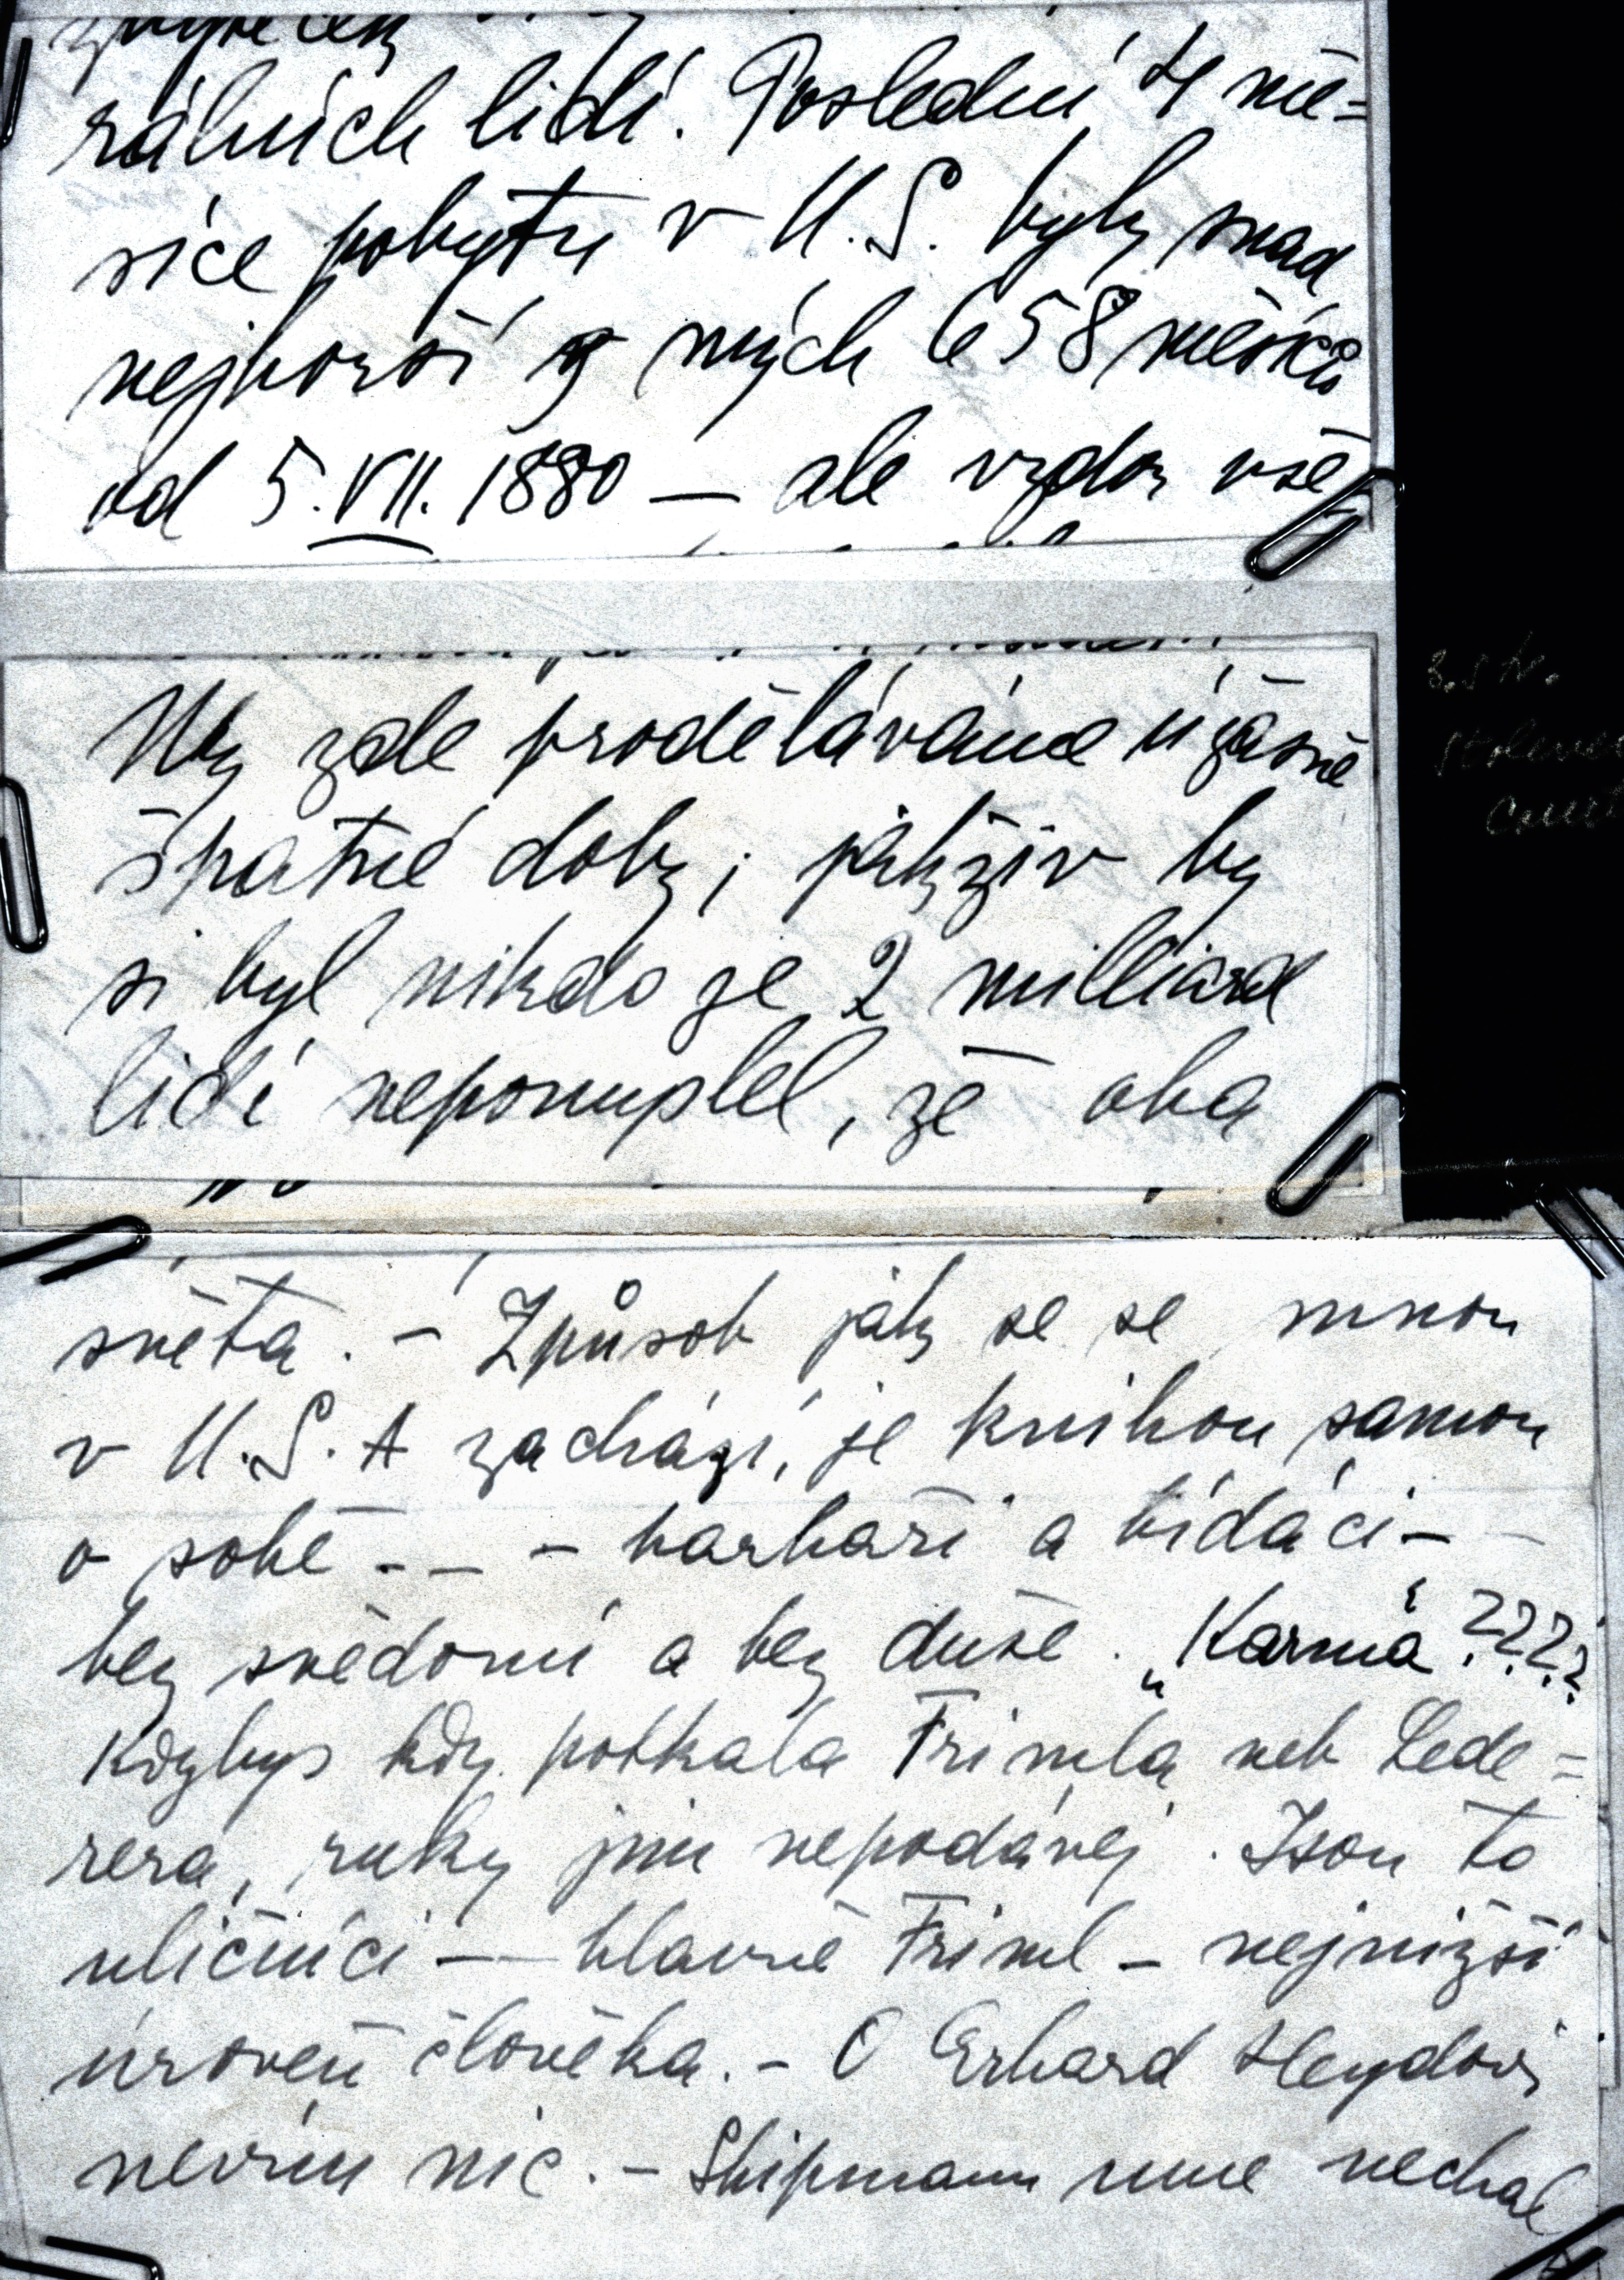 rálních lidí. Poslední 4 mě=
síce pobytu v U.S. byly snad
nejhorší z mých 658 měsíců
od 5. VII. 1880 — ale vzdor vše
My zde proděláváme úžasně
špatné doby; jakživ by
si byl nikdo ze 2 milliard
lidí nepomyslel, že oba
světa. – Způsob jak se se mnou
v U.S.A zachází, je knihou samou
o sobě – – – barbaři a bídáci –
bez svědomí a bez duše. „Karma“????
Kdybys kdy potkala Frimla neb Lede=
rera, ruky jim nepodávej. Jsou to
uličníci — hlavně Friml – nejnižší
úroveň člověka. – O Erhard Heydovi
nevím nic. – Shipmann mne nechal
3. str.